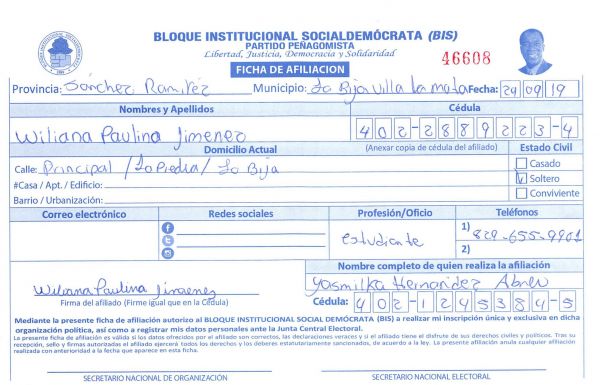 BLOQUE INSTITUCIONAL SOCIALDEMÓCRATA (BIS)
PARTIDO PEÑAGOMISTA
Libertad, Justicia, Democracia y Solidaridad
46608
FICHA DE AFILIACION
Provincia: Sánchez Ramírez Municipio: La Bija Villa La Mata Fecha: 24/09/19
Nombres y Apellidos Cédula
Wiliana Paulina Jimenez 402-2889223-4
Domicilio Actual (Anexar copia de cédula del afiliado) Estado Civil
Calle: Principal / La Piedra / La Bija Casado
#Casa / Apt. / Edificio: Soltero
Barrio / Urbanización: Conviviente
Correo electrónico Redes sociales Profesión/Oficio Teléfonos
estudiante 1) 829-655-9901
2)
Nombre completo de quien realiza la afiliación
Wiliana Paulina Jimenez Yasmilka Hernandez Abreu
Firma del afiliado (Firme igual que en la Cédula) Cédula: 402-1245384-5
Mediante la presente ficha de afiliación autorizo al BLOQUE INSTITUCIONAL SOCIAL DEMÓCRATA (BIS) a realizar mi inscripción única y exclusiva en dicha
organización política, así como a registrar mis datos personales ante la Junta Central Electoral.
La presente ficha de afiliación es válida si los datos ofrecidos por el afiliado son correctos, las declaraciones veraces y si el afiliado tiene el disfrute de sus derechos civiles y políticos. Tras su
recepción, sello y firmas autorizadas el afiliado ejercerá todos los derechos y los deberes estatutariamente sancionados, de acuerdo a la ley. La presente afiliación anula cualquier afiliación
realizada con anterioridad a la fecha que aparece en esta ficha.
SECRETARIO NACIONAL DE ORGANIZACIÓN SECRETARIO NACIONAL ELECTORAL